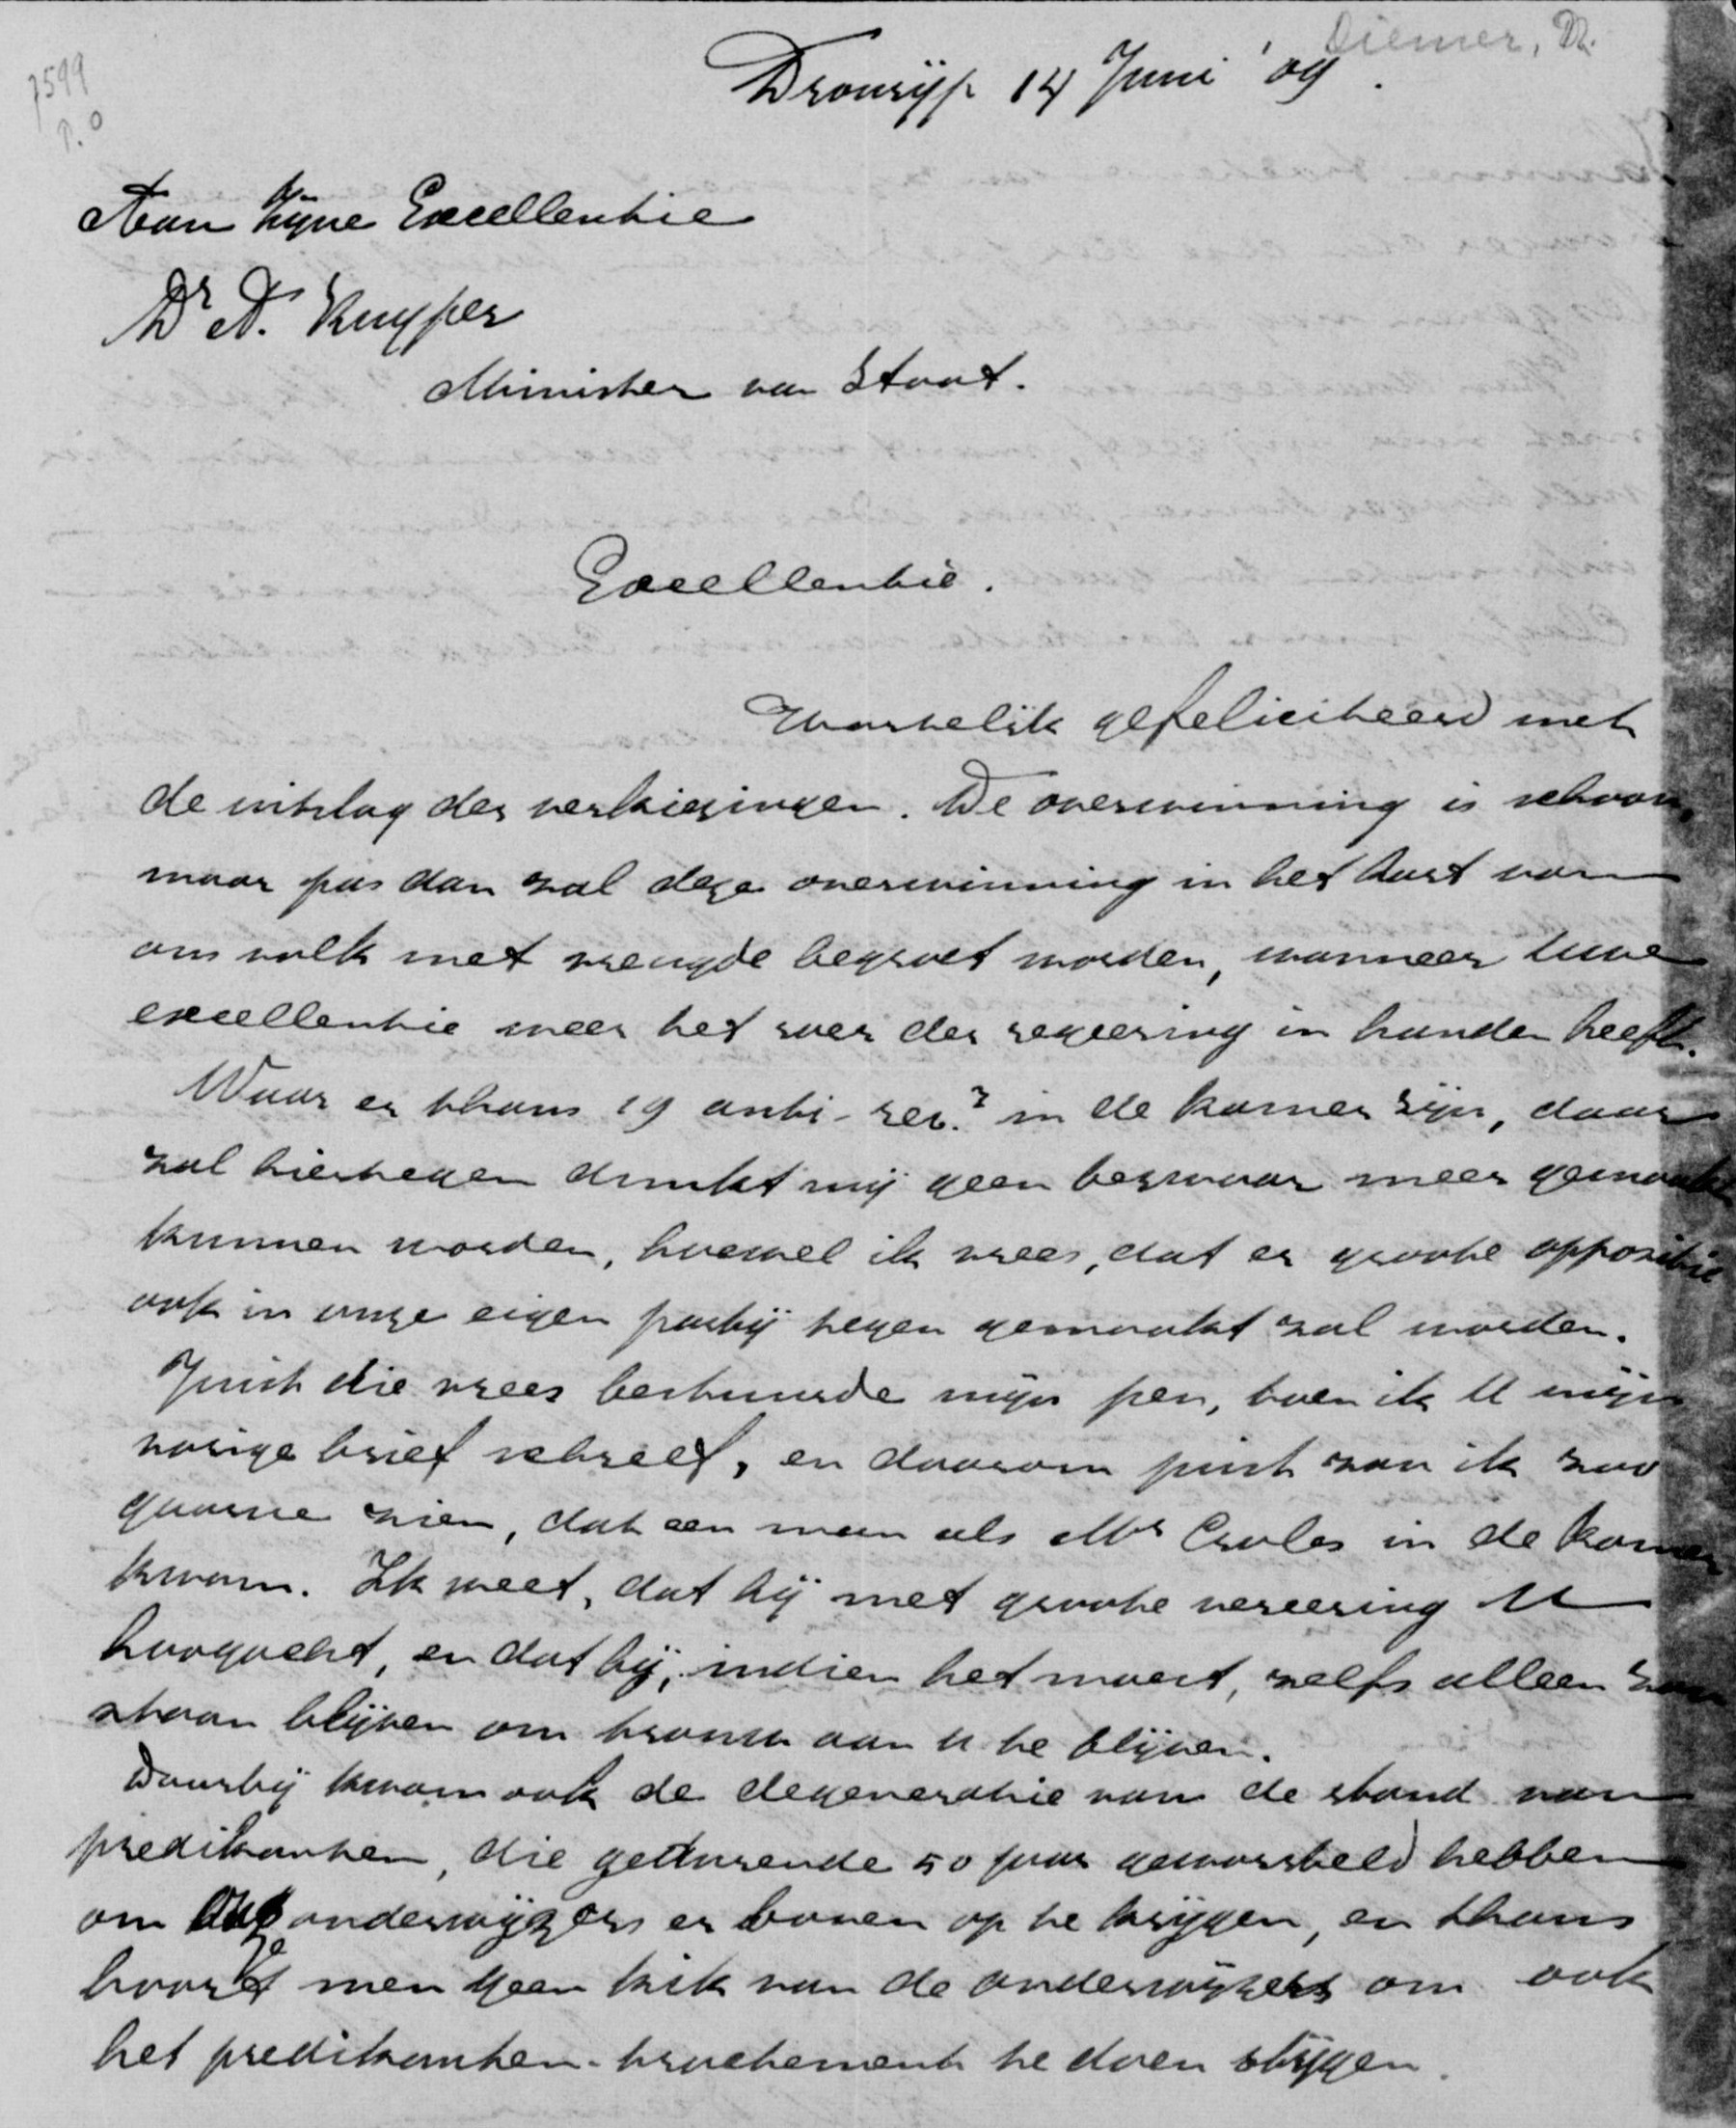 Diemer, N.
7599
P. O
Dronrijp 14 Juni '09.
Aan Zijne Excellentie
Dr A. Kuyper
Minister van Staat.
Excellentie.
Hartelijk gefeliciteerd met
de uitslag der verkiezingen. De overwinning is schoon,
maar pas dan zal deze overwinning in het hart van
ons volk met vreugde begroet worden, wanneer Uwe
excellentie weer het roer der regeering in handen heeft.
Waar er thans 19 anti-rev. in de kamer zijn, daar
zal hiertegen dunkt mij geen bezwaar meer gemaakt
kunnen worden, hoewel ik vrees, dat er groote oppositie
ook in onze eigen partij tegen gemaakt zal worden.
Juist die vrees bestuurde mijn pen, toen ik U mijn
vorige brief schreef, en daarom juist zou ik zoo
gaarne zien, dat een man als Mr Croles in de kamer
kwam. Ik weet, dat hij met groote vereering U
hoogacht, en dat hij, indien het moest, zelfs alleen zou
staan blijven om trouw aan U te blijven.
Daarbij kwam ook de degeneratie van de stand van
predikanten, die gedurende 50 jaar geworsteld hebben
om onderwijzers er boven op te krijgen, en thans
hoort men geen kik van de onderwijzers om ook
het predikanten-tractement te doen stijgen.